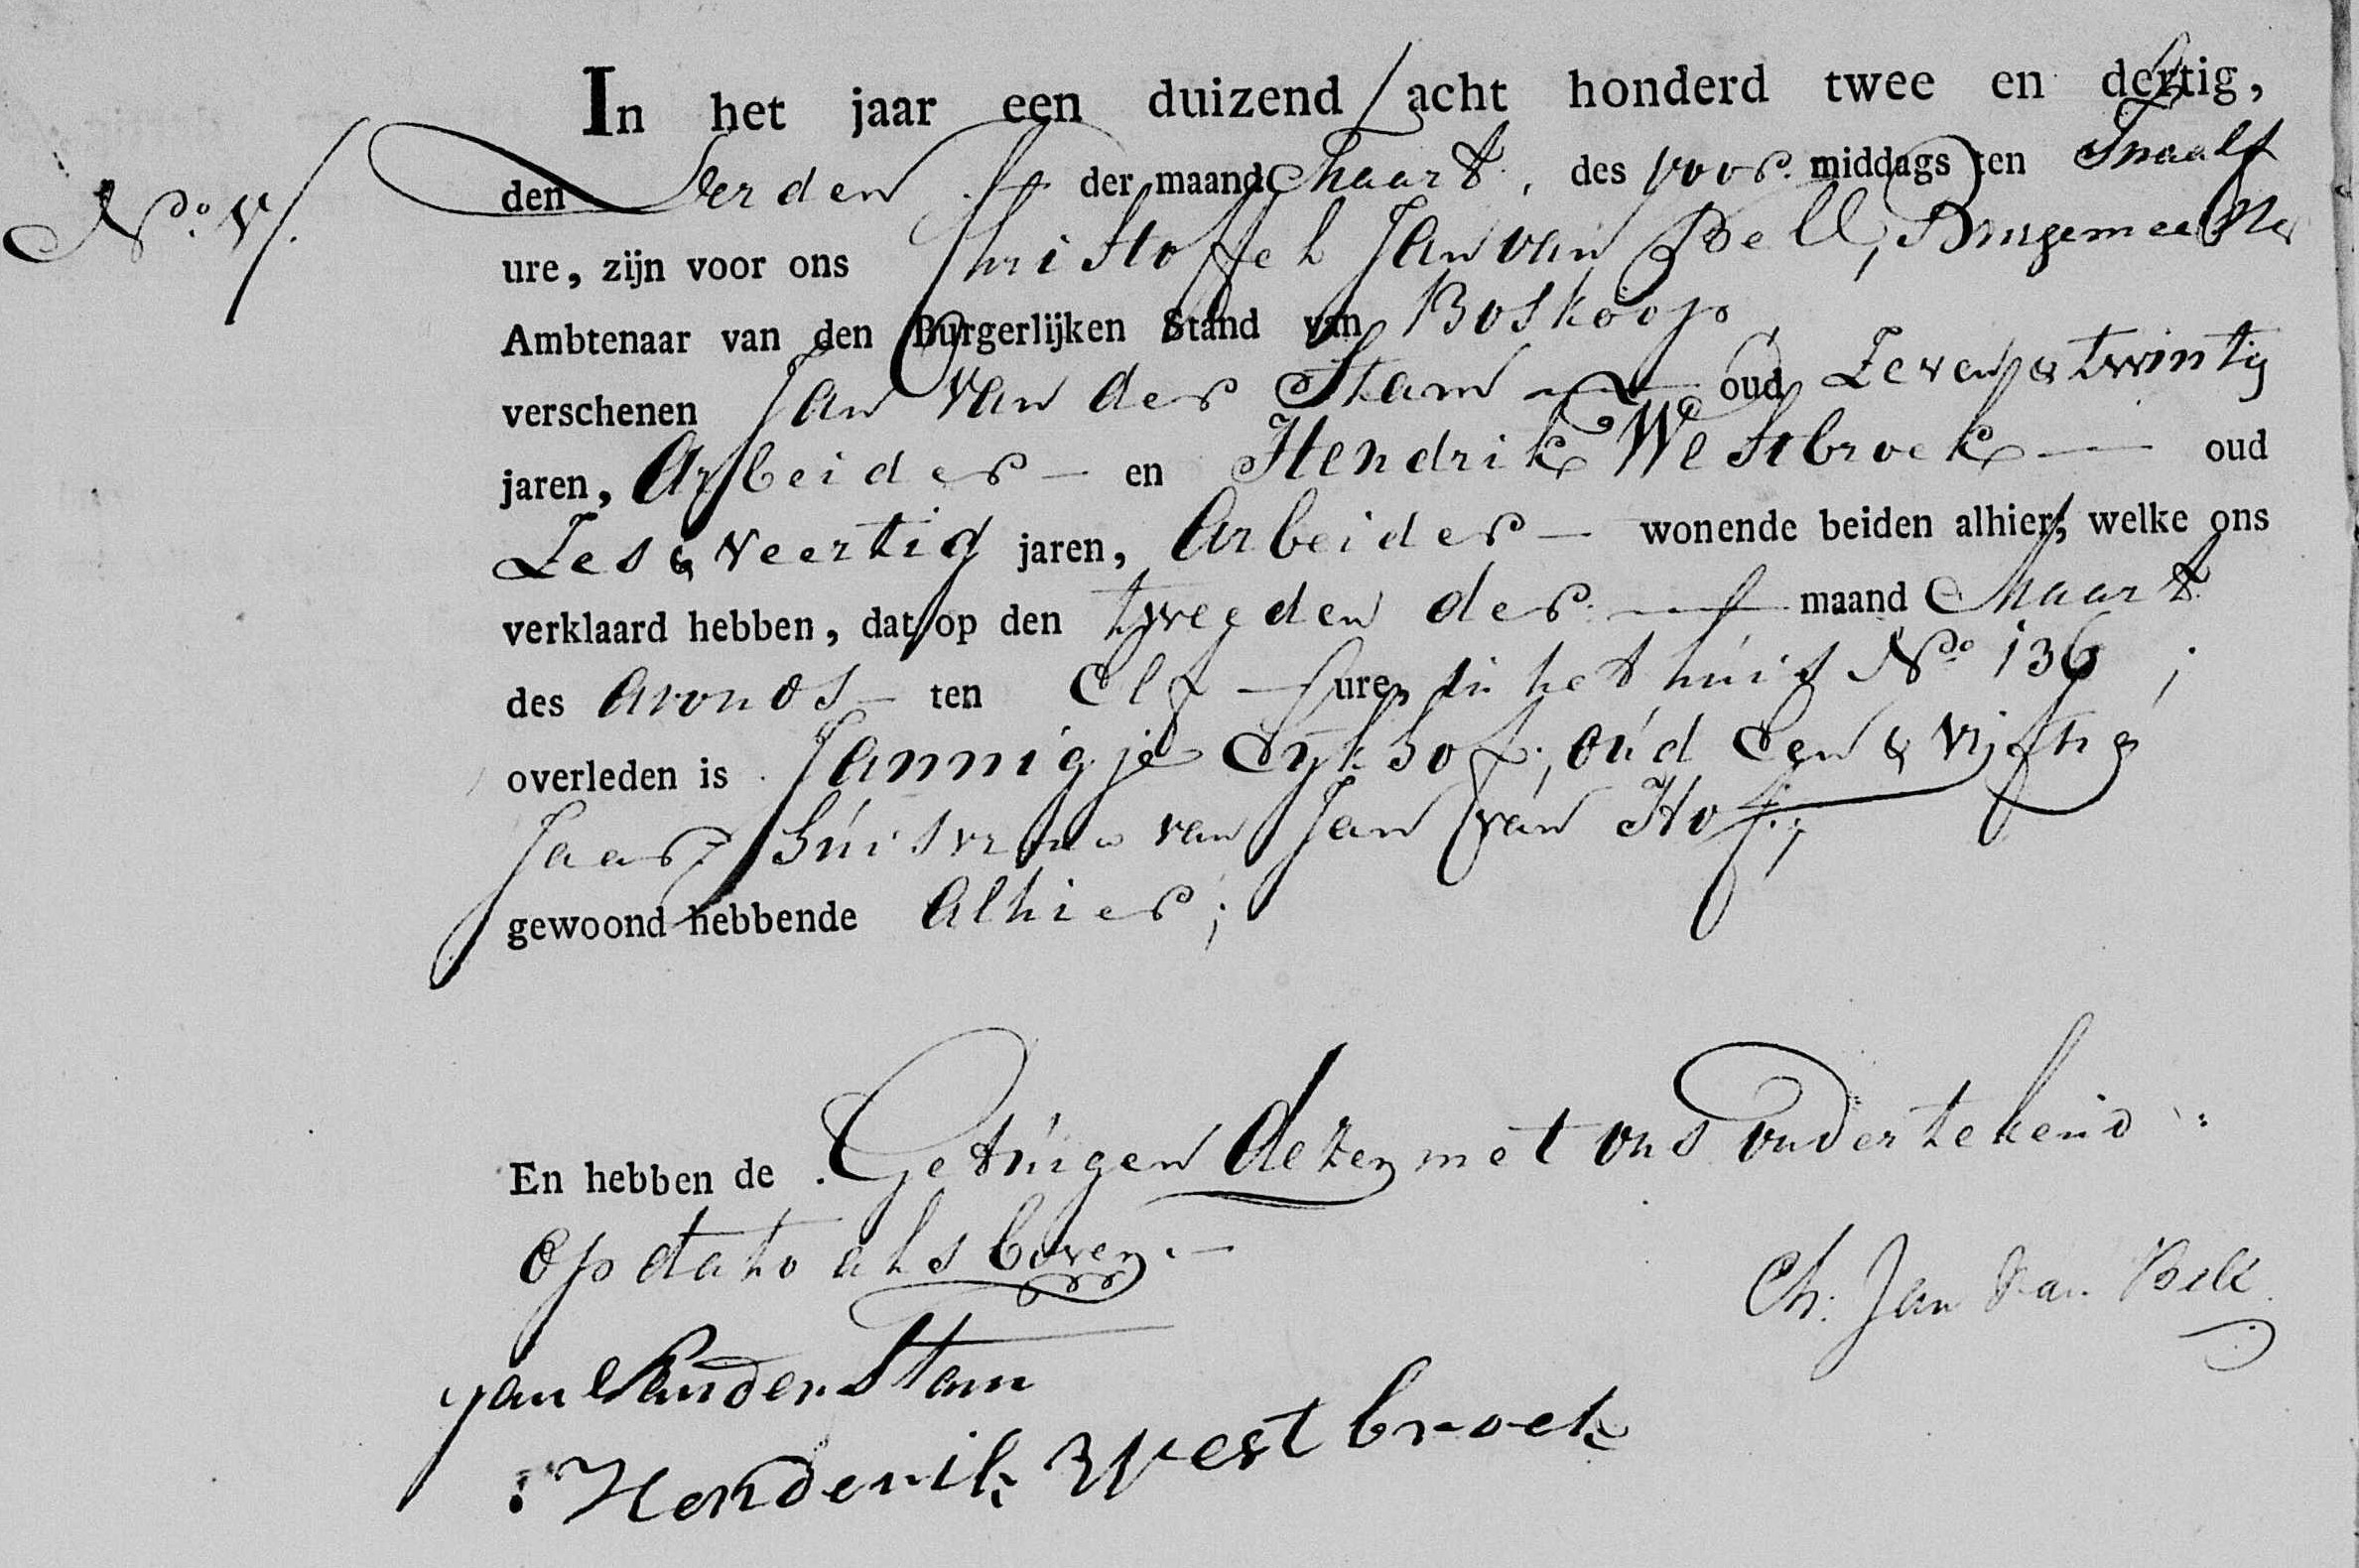 In het jaar een duizend acht honderd twee en dertig,
No. V.
den derden der maand Maart, des voor middags ten Twaalf
ure, zijn voor ons Christoffel Jan van Bell, Burgemeester
Ambtenaar van den Burgerlijken Stand van Boskoop
verschenen Jan van der Stam oud Zeven & twintig
jaren, Arbeider — en Hendrik Westbroek — oud
Zes & Veertig jaren, Arbeider — wonende beiden alhier, welke ons
verklaard hebben, dat op den tweeden der — maand Maart
des avonds — ten Elf — ure, in het huis No. 136;
overleden is Jannigje Eykhof, oud Een & Vijftig
Jaar, huisvrouw van Jan van Hof;
gewoond hebbende Alhier;
En hebben de Getuigen dezen met ons ondertekend
op dato als boven. —
Ch: Jan van Bell
Jan van der Stam
Henderik Westbroek